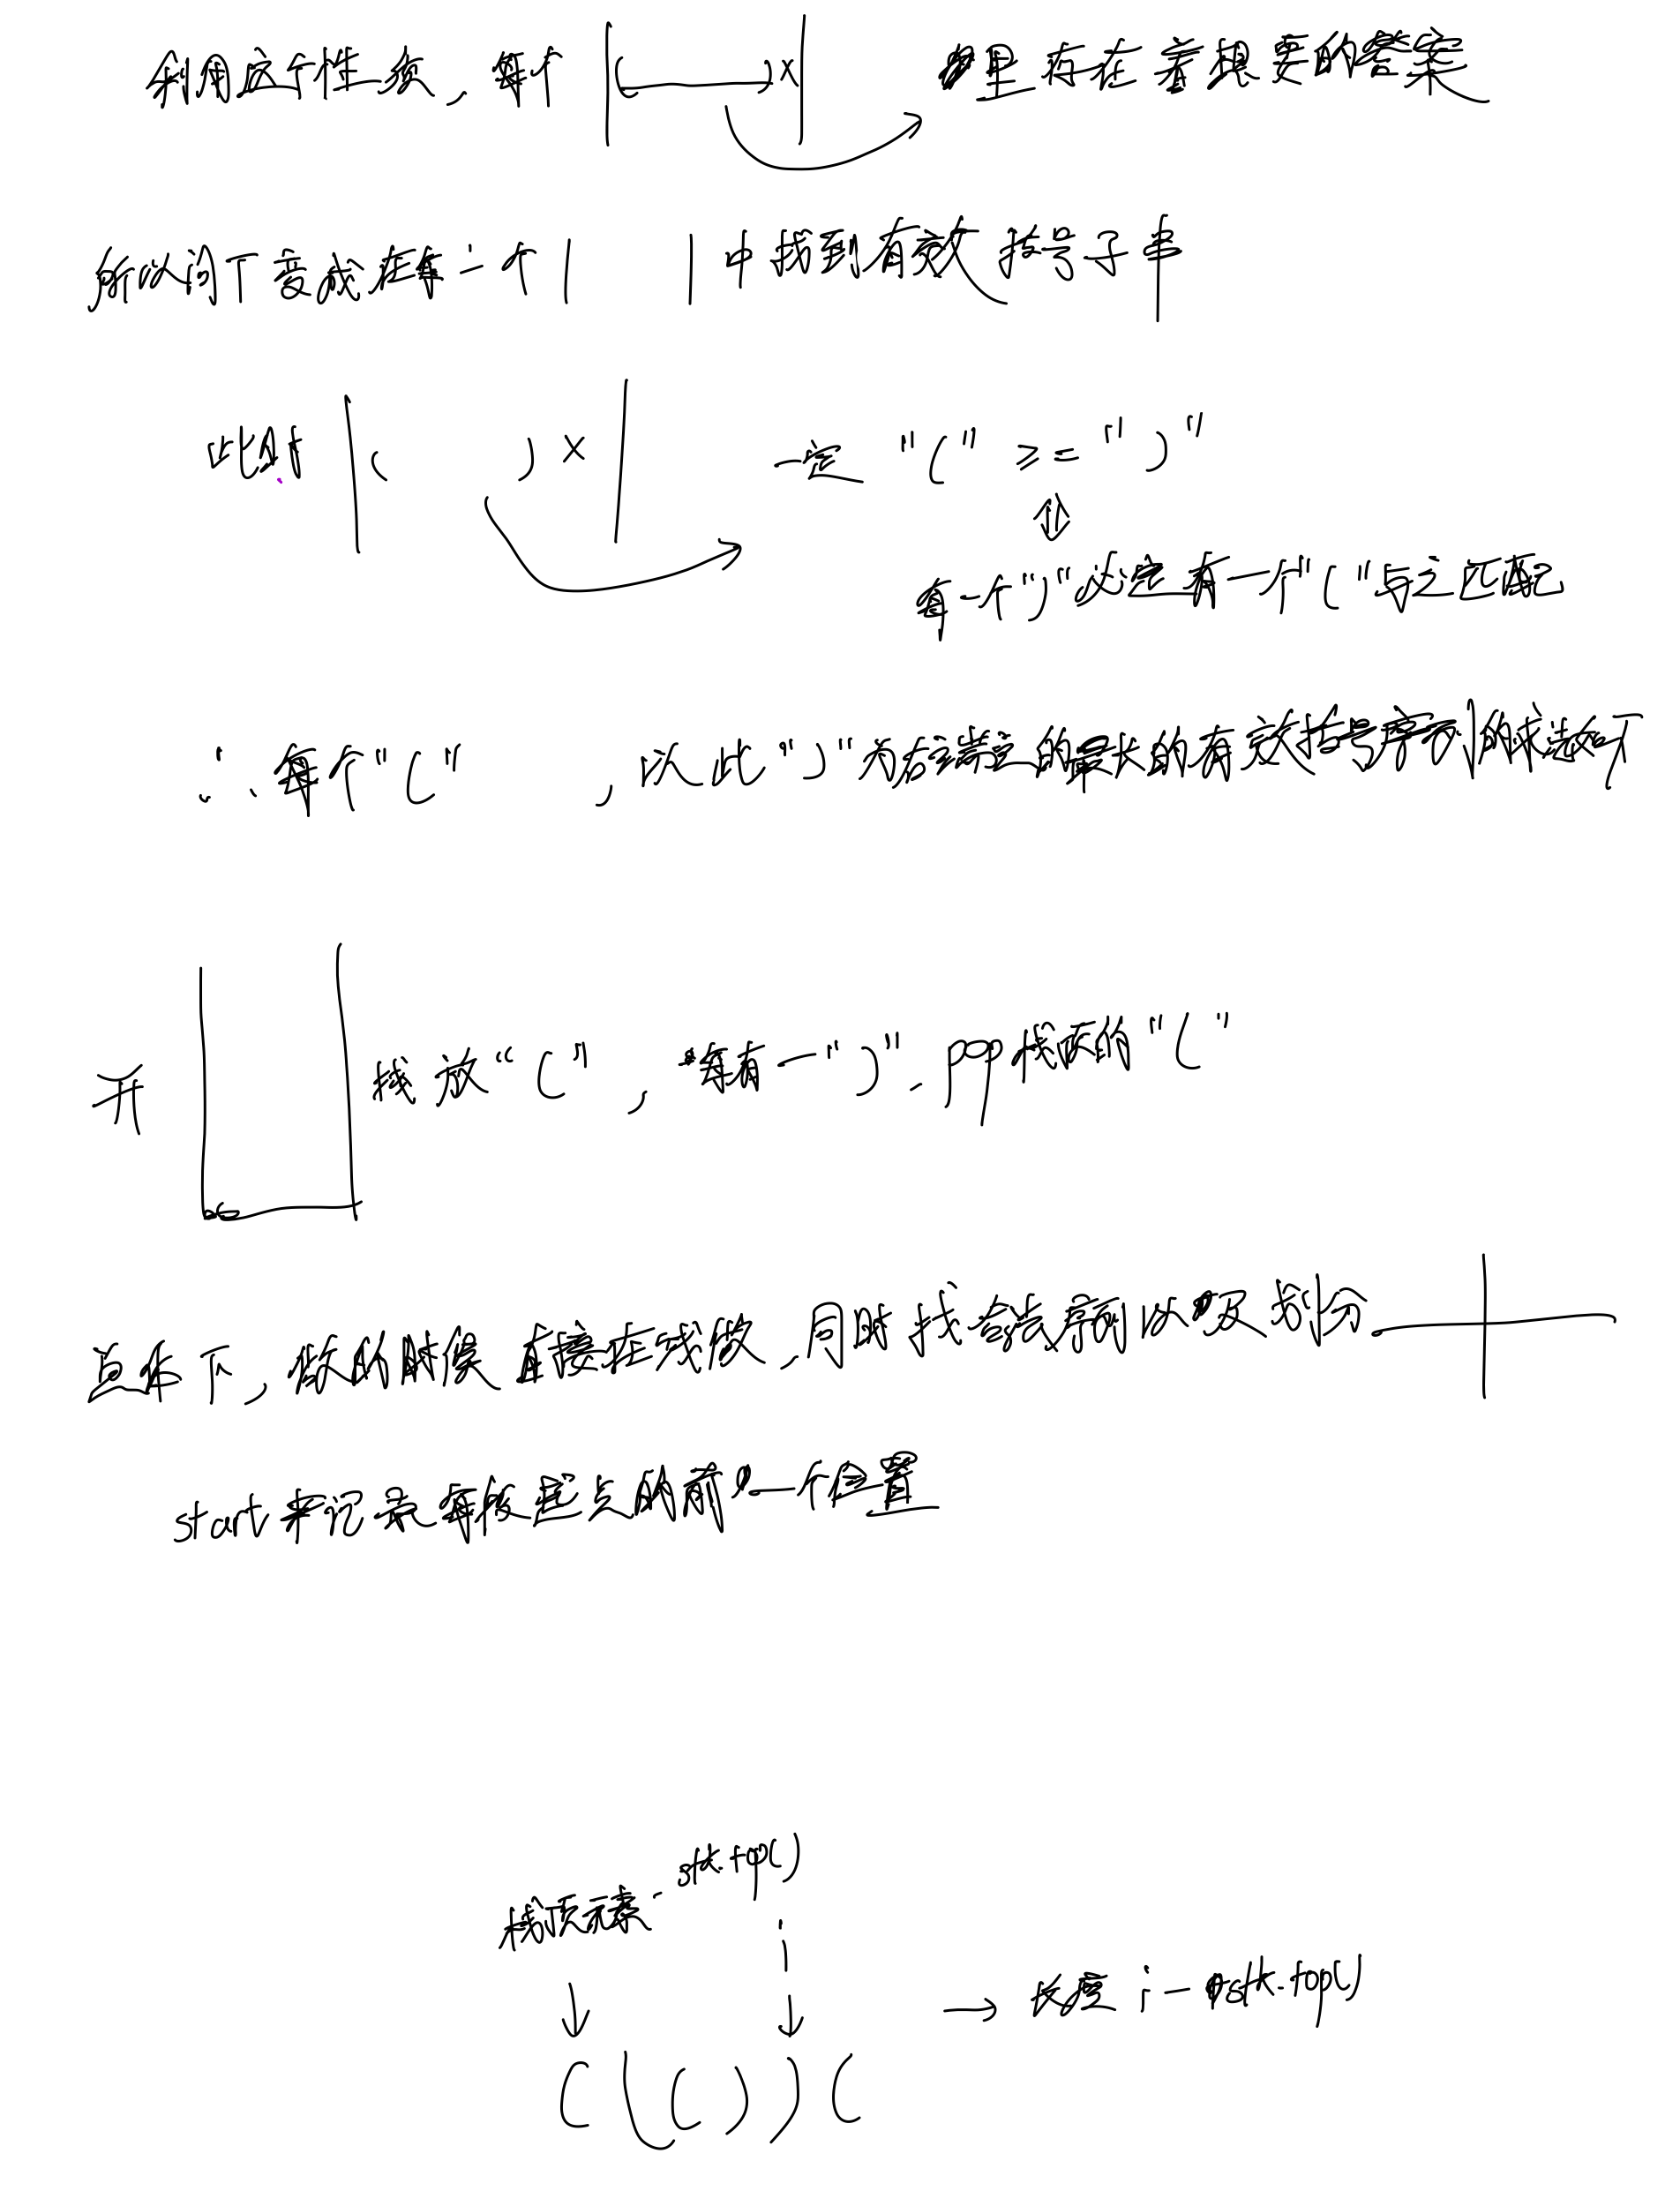 利用这个性质，每个 |( )×| 里存在着想要的答案
所以问下变成在每一个 | | 中找到有效括号子串
此时 |( )×| 一定 "(" >= ")"
⇕
每一个")"必定有一个"("与之匹配
∴ 每个"(" ，以此")"为右端点的最长的有效括号序列的求法如下
开 栈放"("，每有一")"，pop栈顶的"("
具体下，做的时候直接在线做，同时找合法序列以及划分
start来记录每段起点的前一个位置
栈顶元素 stk.top()
i
( ( ( ) ) ( → 长度 i - stk.top()